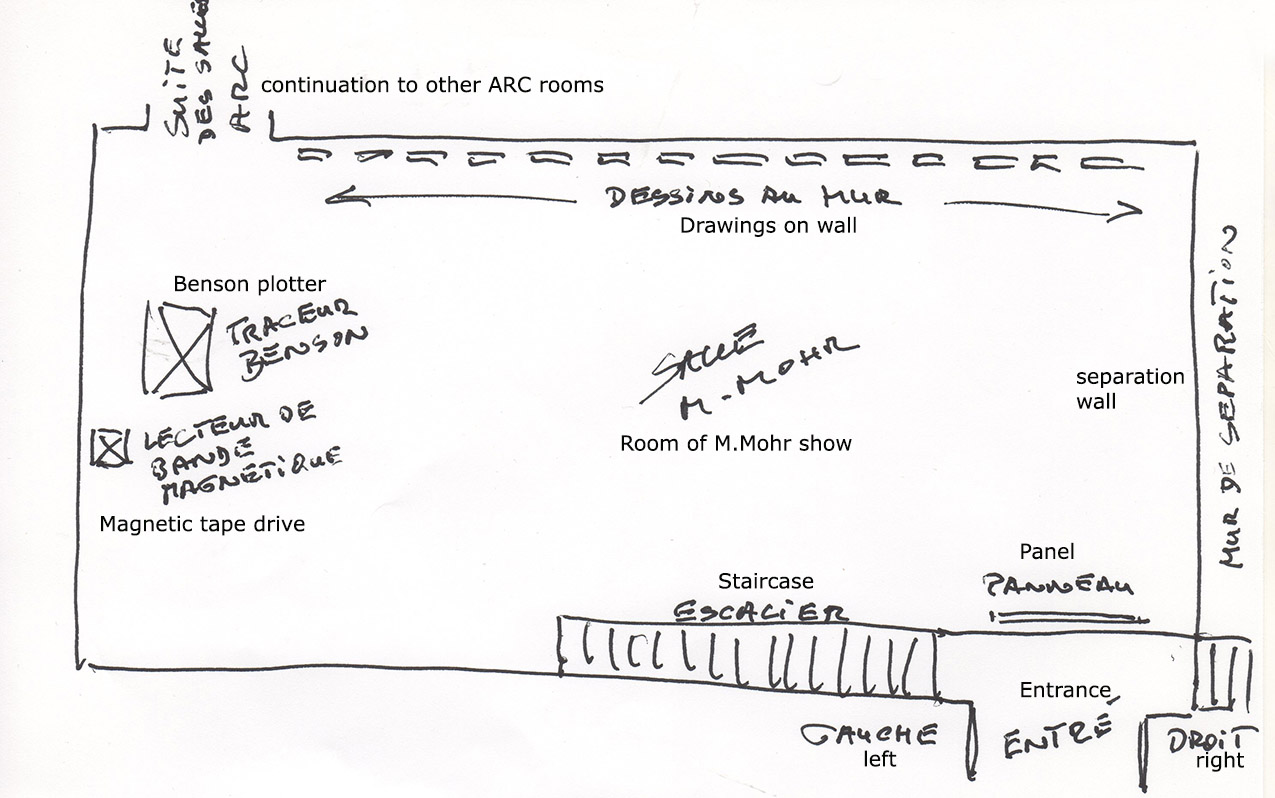 SUITE
DES SALLES
ARC
continuation to other ARC rooms
DESSINS AU MUR
Drawings on wall
Benson plotter
TRACEUR
BENSON
SALLE
M. MOHR
Room of M.Mohr show
separation
wall
MUR DE SEPARATION
LECTEUR DE
BANDE
MAGNETIQUE
Magnetic tape drive
Panel
PANNEAU
Staircase
ESCALIER
Entrance
ENTRÉ
GAUCHE
left
DROIT
right